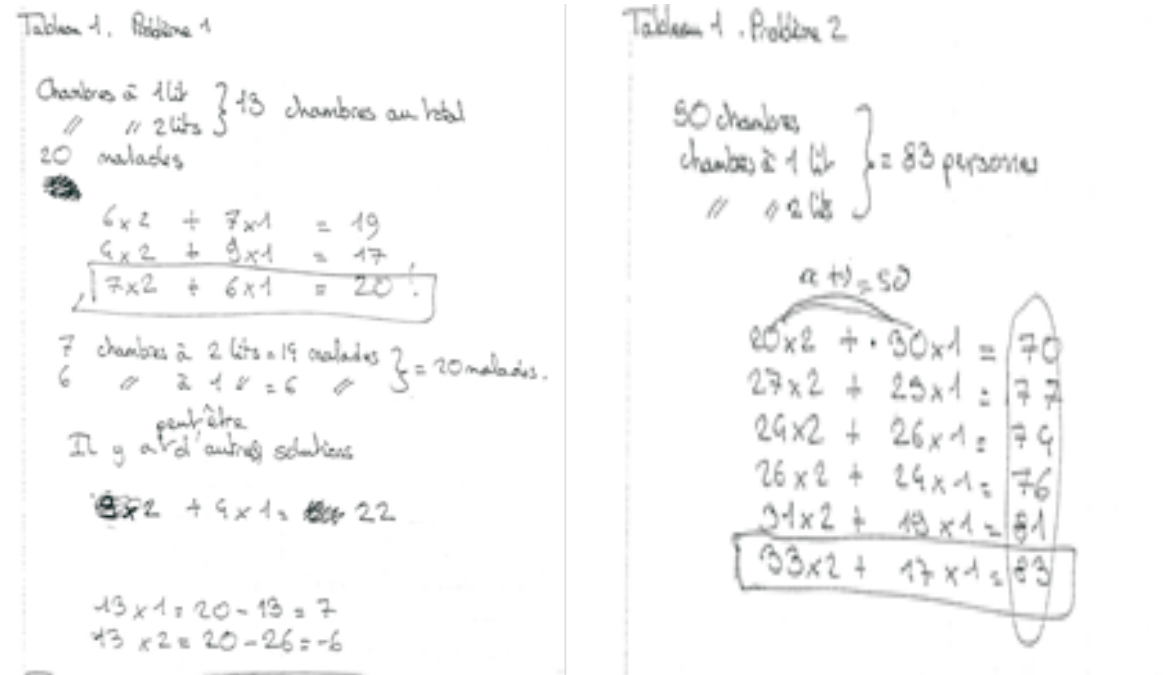 Tableau 1. Problème 1
Chambres à 1 lit
〃 〃 2 lits } 13 chambres au total
20 malades
6x2 + 7x1 = 19
4x2 + 9x1 = 17
7x2 + 6x1 = 20 !
7 chambres à 2 lits = 14 malades
6 〃 à 1 〃 = 6 〃 } = 20 malades.
peut être
Il y a d'autres solutions
x2 + 4x1 = 22
13 x 1 = 20 - 13 = 7
13 x 2 = 20 - 26 = -6
Tableau 1. Problème 2
50 chambres
chambres à 1 lit
〃 〃 2 lits } = 83 personnes
= 50
20x2 + 30x1 = 70
27x2 + 23x1 = 77
24x2 + 26x1 = 74
26x2 + 24x1 = 76
31x2 + 19x1 = 81
33x2 + 17x1 = 83